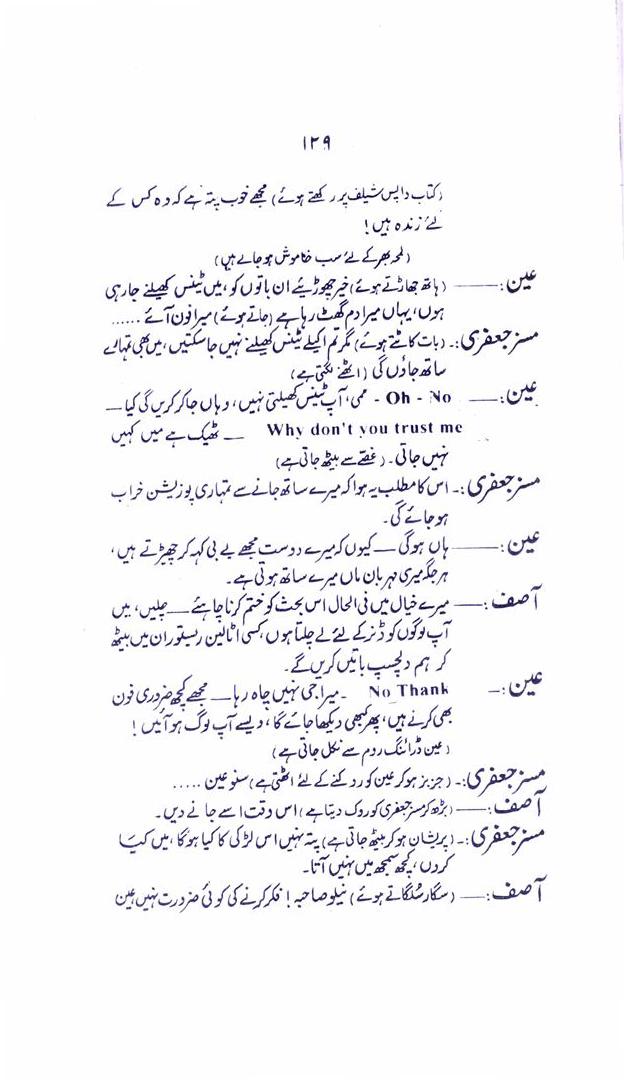 ۱۲۹
(کتاب واپس شیلف پر رکھتے ہوئے) مجھے خوب پتہ ہے کہ وہ کس کے
لئے زندہ ہیں!
(لمحہ بھر کے لئے سب خاموش ہو جاتے ہیں)
عین:۔۔۔ (ہاتھ جھاڑتے ہوئے) خیر چھوڑیئے ان باتوں کو، میں ٹینس کھیلنے جا رہی
ہوں، یہاں میرا دم گھٹ رہا ہے (جاتے ہوئے) میرا فون آئے ......
مسز جعفری:۔ (بات کاٹتے ہوئے) مگر تم اکیلے ٹینس کھیلنے نہیں جا سکتیں، میں بھی تمہارے
ساتھ جاؤں گی (اٹھنے لگتی ہے)
عین:۔۔۔ Oh - No - ممی، آپ ٹینس کھیلتی نہیں، وہاں جا کر کریں گی کیا ــــ
Why don't you trust me ــــ ٹھیک ہے میں کہیں
نہیں جاتی۔ (غصّے سے بیٹھ جاتی ہے)
مسز جعفری:۔ اس کا مطلب یہ ہوا کہ میرے ساتھ جانے سے تمہاری پوزیشن خراب
ہو جائے گی۔
عین:۔۔۔ ہاں ہو گی ــــ کیوں کہ میرے دوست مجھے بے بی کہہ کر چھیڑتے ہیں،
ہر جگہ میری مہربان ماں میرے ساتھ ہوتی ہے۔
آصف:۔۔۔ میرے خیال میں فی الحال اس بحث کو ختم کرنا چاہئے ــــ چلیں، میں
آپ لوگوں کو ڈنر کے لئے لے چلتا ہوں، کسی اٹالین ریستوران میں بیٹھ
کر ہم دلچسپ باتیں کریں گے۔
عین:۔ No Thank ۔ میرا جی نہیں چاہ رہا ــــ مجھے کچھ ضروری فون
بھی کرنے ہیں، پھر کبھی دیکھا جائے گا، ویسے آپ لوگ ہو آئیں!
(عین ڈرائنگ روم سے نکل جاتی ہے)
مسز جعفری:۔ (جزبز ہو کر عین کو روکنے کے لئے اٹھتی ہے) سنو عین .....
آصف:۔۔۔ (بڑھ کر مسز جعفری کو روک دیتا ہے) اس وقت اسے جانے دیں۔
مسز جعفری:۔ (پریشان ہو کر بیٹھ جاتی ہے) پتہ نہیں اس لڑکی کا کیا ہو گا، میں کیا
کروں، کچھ سمجھ میں نہیں آتا۔
آصف:۔۔۔ (سگار سُلگاتے ہوئے) نیلو صاحبہ! فکر کرنے کی کوئی ضرورت نہیں عین